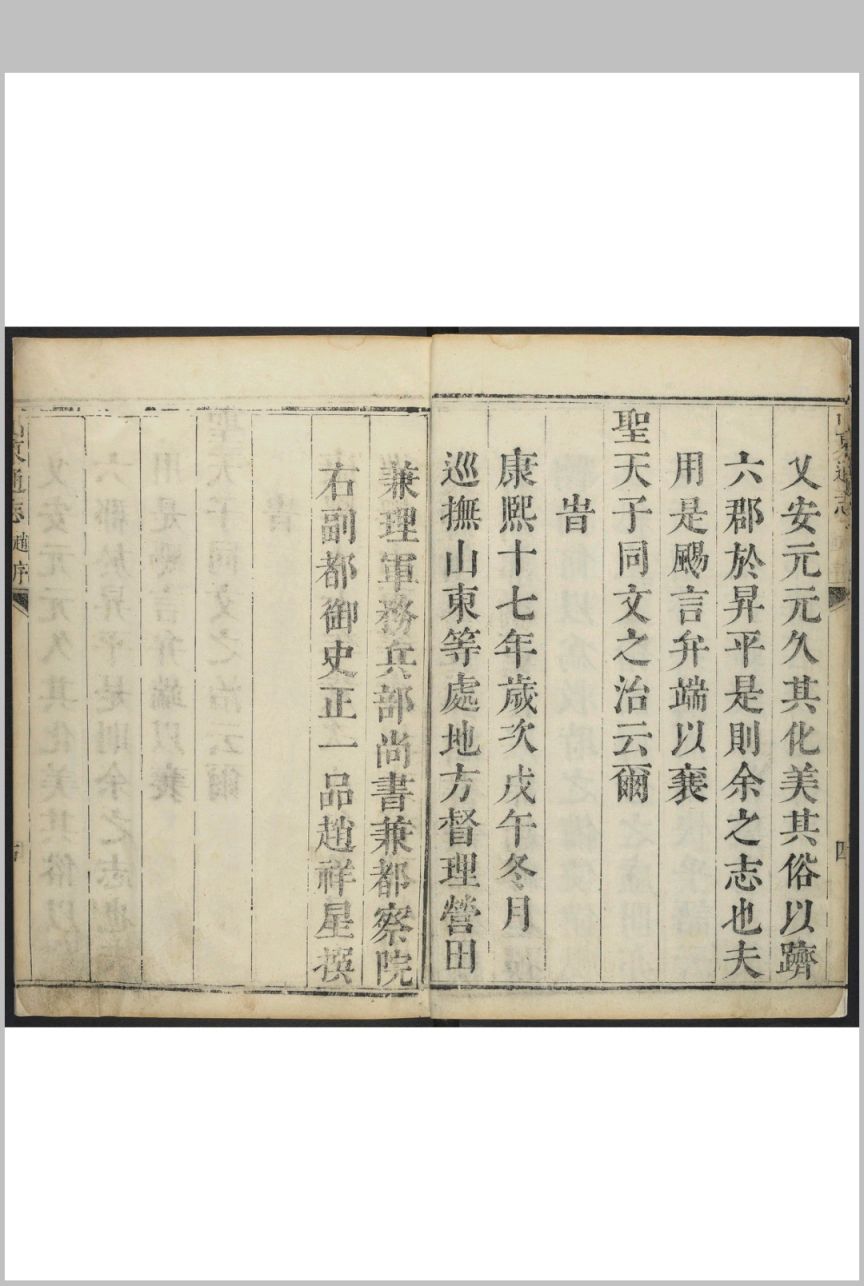 乂安元元久其化美其俗以躋
六郡於昇平是則余之志也夫
用是颺言弁端以襄
聖天子同文之治云爾
旹
康熙十七年歲次戊午冬月
巡撫山東等處地方督理營田
兼理軍務兵部尚書兼都察院
右副都御史正一品趙祥星撰
山東通志 趙序